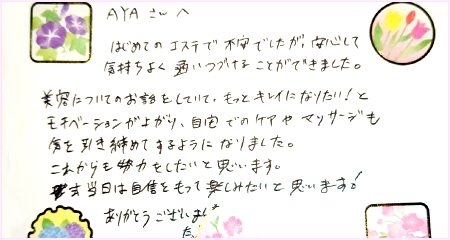 AYAさんへ
はじめてのエステで不安でしたが、安心して
気持ちよく通いつづけることができました。
美容についてのお話をしていて、もっとキレイになりたい！と
モチベーションが上がり、自宅でのケアやマッサージも
気を引き締めてするようになりました。
これからも努力をしたいと思います。
当日は自信をもって楽しみたいと思います！
ありがとうございまし
た。